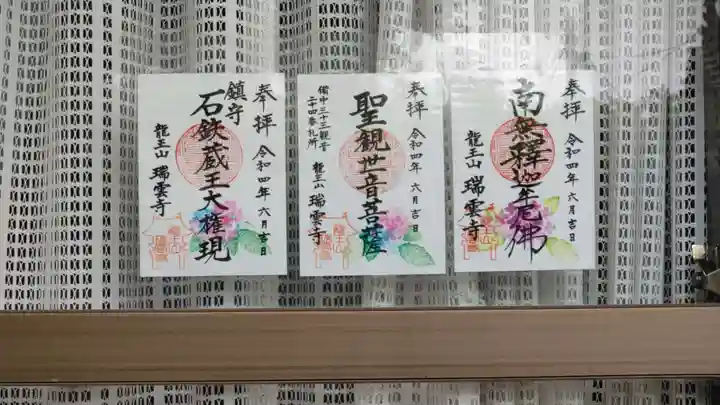 奉拝
令和四年六月吉日
南無釋迦牟尼佛
龍王山 瑞雲寺
奉拝
令和四年六月吉日
聖観世音菩薩
備中三十三観音
二十四番札所
龍王山 瑞雲寺
奉拝
令和四年六月吉日
鎮守
石鉄蔵王大権現
龍王山 瑞雲寺